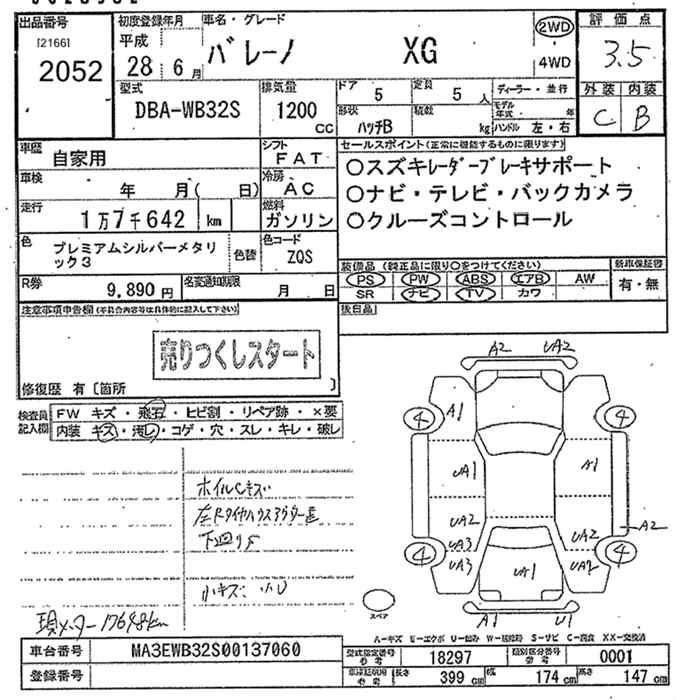 出品番号 初度登録年月 車名・グレード 評価点
[2166]
2052
平成
28 6月
バレーノ XG
2WD
4WD
3.5
型式
DBA-WB32S
排気量
1200
CC
ドア 5
定員 5人
形状 ハッチB
積載 kg
ディーラー・並行
モデル年式 年
ハンドル 左・右
外装 内装
C B
車歴
自家用
シフト
FAT
車検
年 月( 日)
冷房
AC
走行
1万7千642 km
燃料
ガソリン
色
プレミアムシルバーメタリ
ック3
色替
色コード
ZQS
セールスポイント(正常に機能するものに限ります)
○スズキレーダーブレーキサポート
○ナビ・テレビ・バックカメラ
○クルーズコントロール
装備品 (純正品に限り○をつけてください)
PS PW ABS エアB AW
SR ナビ TV カワ
新車保証書
有・無
R券
9,890円
名変通知期限
月 日
後日品
注意事項申告欄(不具合内容等は具体的に記入して下さい)
売りつくしスタート
修復歴 有〔箇所 〕
検査員
記入欄
FW キズ・飛石・ヒビ割・リペア跡・×要
内装 キズ・汚レ・コゲ・穴・スレ・キレ・破レ
ホイルCキズ
左Rタイヤハウスアウター凹
下廻りS
小キズ 小U
現メーター17648km
A2 UA2
4 A1 4
UA1 A1
UA2 UA2 A2
UA3
4 UA3 UA1 UA2 4
A1 U1
スペア
A-キズ E-エクボ U-凹み W-補修跡 S-サビ C-腐食 XX-交換済
車台番号 MA3EWB32S00137060
登録番号
型式指定番号
参考
18297
類別区分番号
参考
0001
車検証記載
参考
長さ 399 cm 幅 174 cm 高さ 147 cm